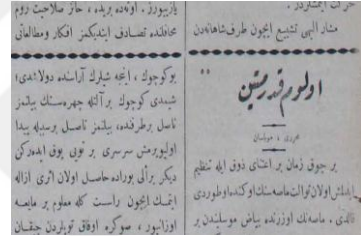 مشار الیهی تشییع ایچون طرف شاهانه‌دن
اولوم قدر متین
محرری : موپاسان
بر چوق زمان بر اعتنای ذوق ایله تنظیم
ایدلمش اولان توالت ماصه‌سنك اوکنده اوطوردی
قالدی . ماصه‌نك اوزرنده بیاض موسلیندن بر
یازییورز . اوته‌ده بریده ، حائز صلاحیت روم
محافلنده تصادف ایتدیکمز افکار ومطالعاتی
بو کوچوك ، اینجه شیلرك آراسنده دولاشدی ؛
شیمدی کوچوك بر آلله چهره‌سنك بیلنمز
ناصل بر طرفنده ، بیلنمز ناصل بر سببله پیدا
اولیویرمش سرسری بر توی یوق ایدرکن
دیکر برآلی بوراده حاصل اولان اثری ازاله
ایتمك ایچون راست کله معلوم بر مایعه
اوزانیور ، صوکره اوفاق تویلردن چیقان